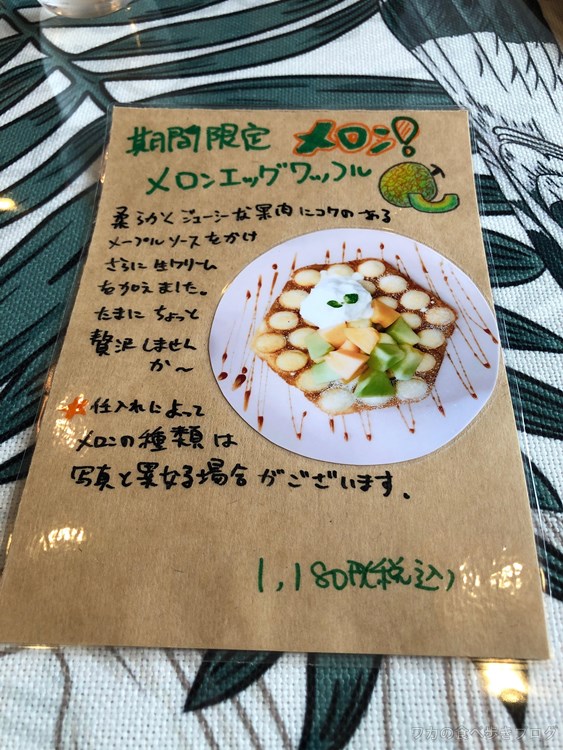 期間限定 メロン!
メロンエッグワッフル
柔らかくジューシーな果肉にコクのある
メープルソースをかけ
さらに生クリーム
を加えました。
たまに ちょっと
贅沢しません
か〜
仕入れによって
メロンの種類は
写真と異なる場合がございます。
1,180円(税込)
フカの食べ歩きブログ